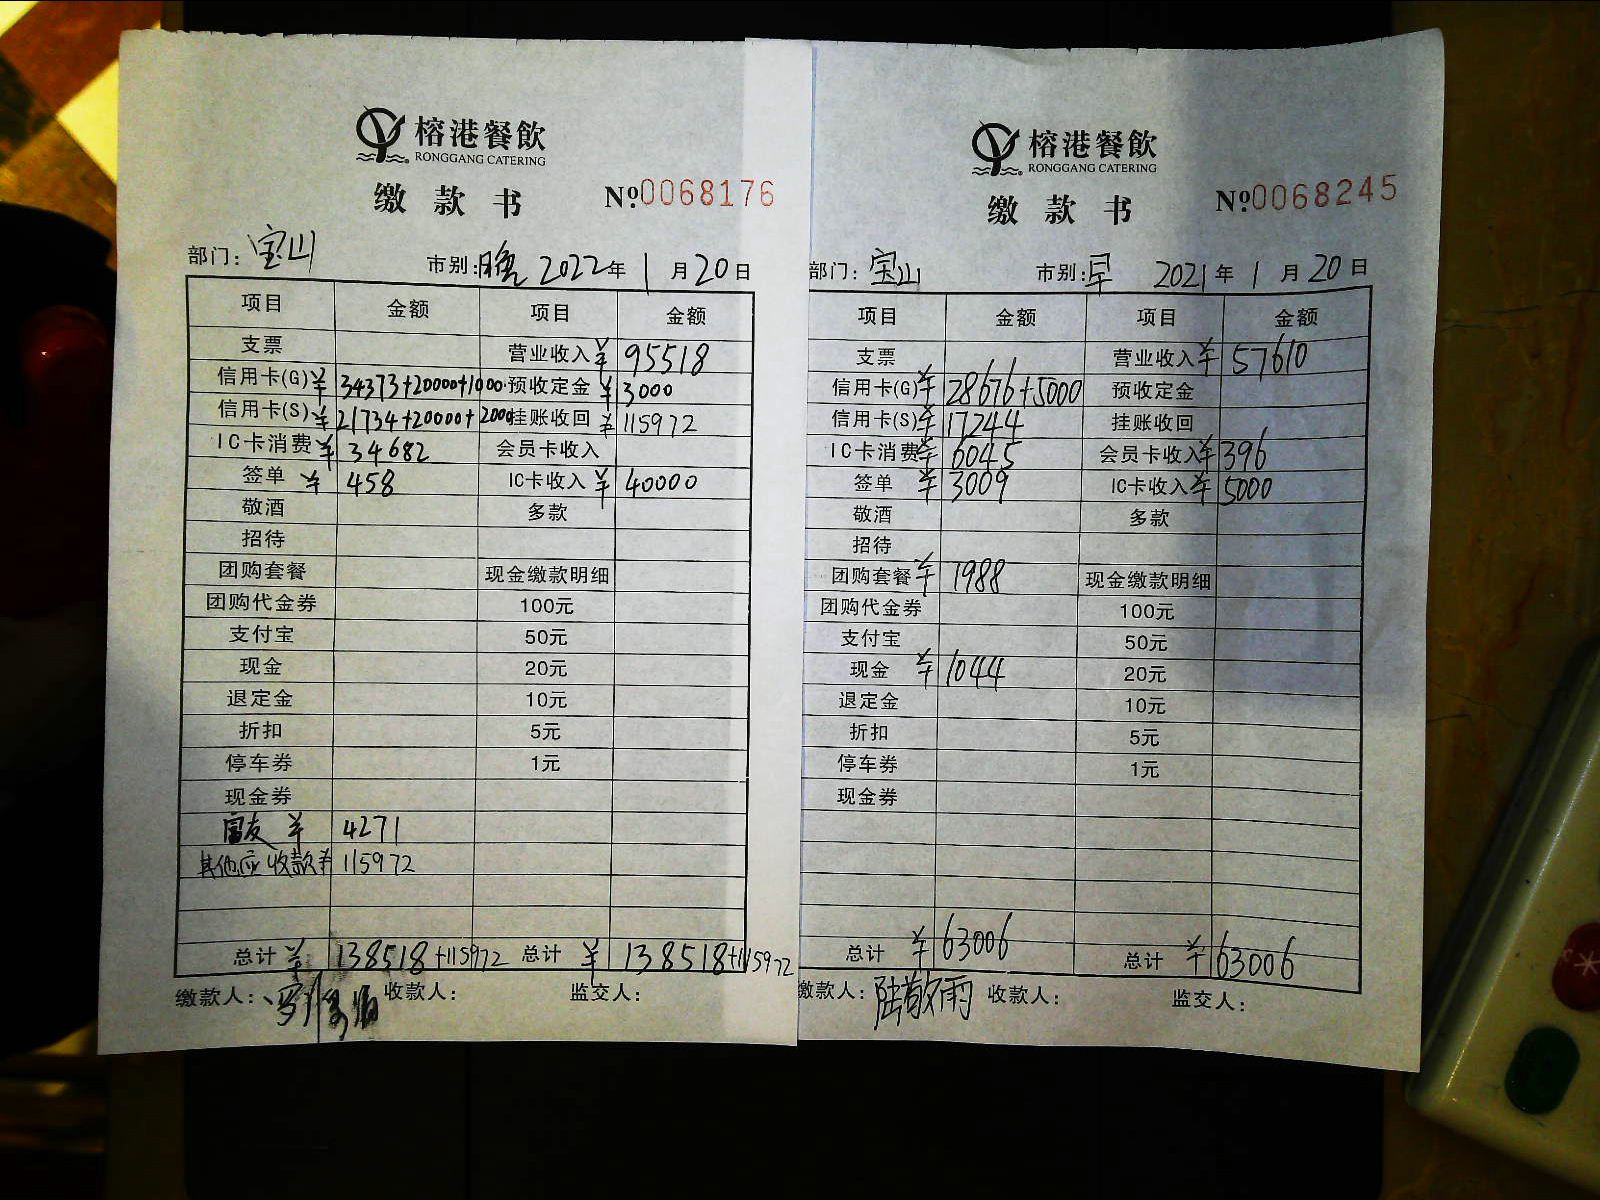 榕港餐飲
RONGGANG CATERING
缴款书 №0068176
部门：宝山 市别：晚 2022年1月20日
项目 金额 项目 金额
支票 营业收入 ¥95518
信用卡(G) ¥34373+20000+1000 预收定金 ¥3000
信用卡(S) ¥21734+20000+2000 挂账收回 ¥115972
IC卡消费 ¥34682 会员卡收入
签单 ¥458 IC卡收入 ¥40000
敬酒 多款
招待
团购套餐 现金缴款明细
团购代金券 100元
支付宝 50元
现金 20元
退定金 10元
折扣 5元
停车券 1元
现金券
富友 ¥4271
其他应收款 ¥115972
总计 ¥138518+115972 总计 ¥138518+115972
缴款人： 收款人： 监交人：
榕港餐飲
RONGGANG CATERING
缴款书 №0068245
部门：宝山 市别：早 2021年1月20日
项目 金额 项目 金额
支票 营业收入 ¥57610
信用卡(G) ¥28676+5000 预收定金
信用卡(S) ¥17244 挂账收回
IC卡消费 ¥6045 会员卡收入 ¥396
签单 ¥3009 IC卡收入 ¥5000
敬酒 多款
招待
团购套餐 ¥1988 现金缴款明细
团购代金券 100元
支付宝 50元
现金 ¥1044 20元
退定金 10元
折扣 5元
停车券 1元
现金券
总计 ¥63006 总计 ¥63006
缴款人：陆敬雨 收款人： 监交人：